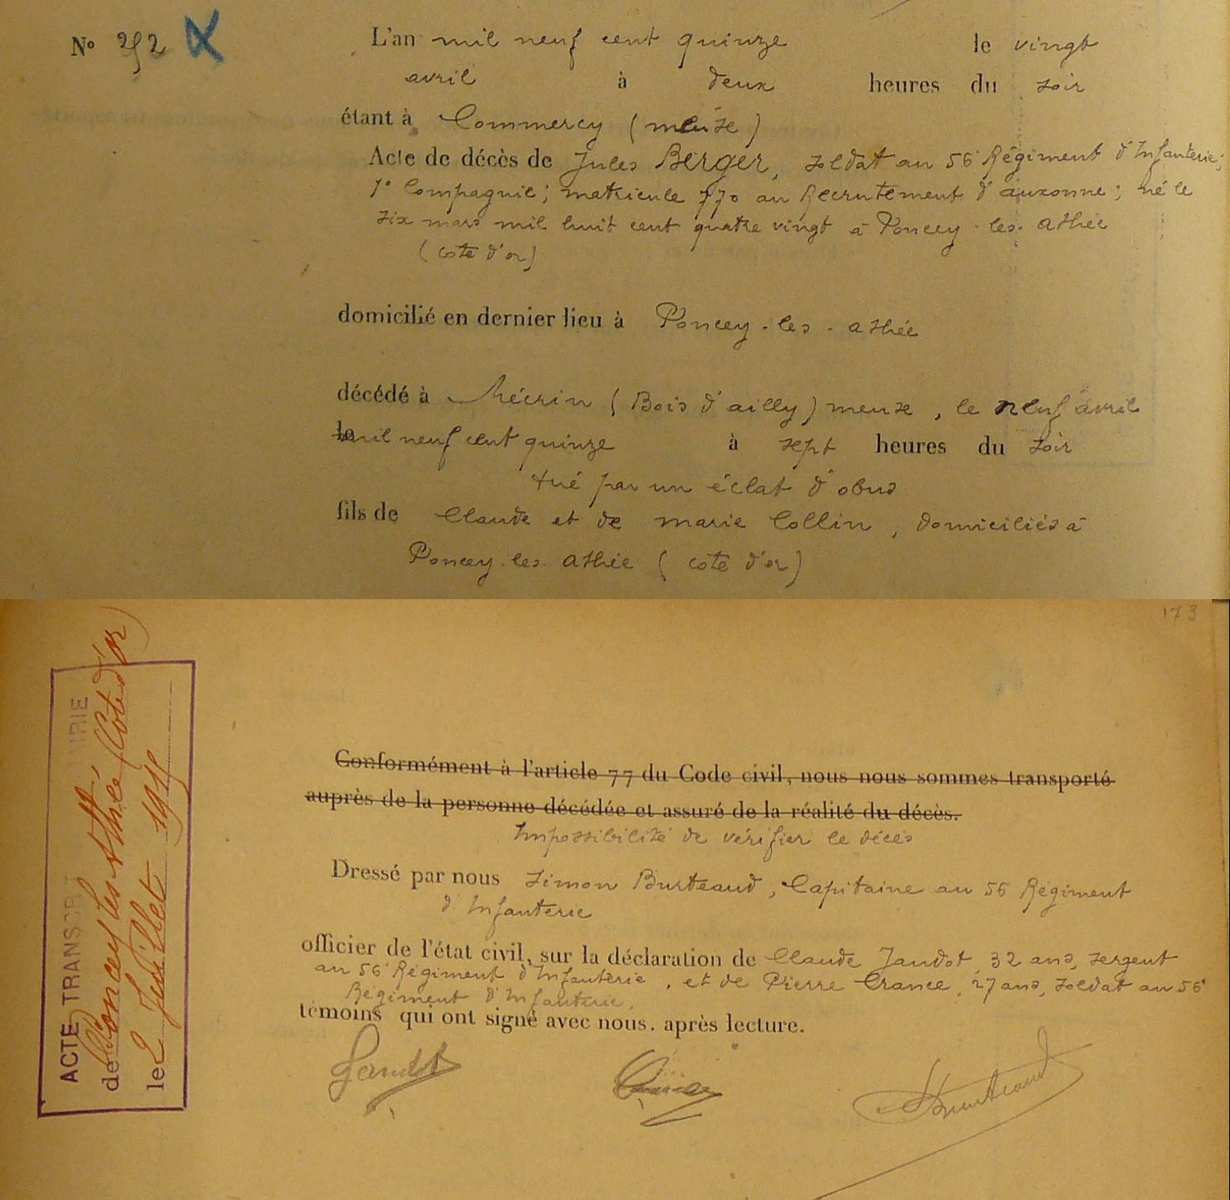 N° 252
L'an mil neuf cent quinze le vingt
avril à deux heures du soir
étant à Commercy (meuse)
Acte de décès de Jules Berger, soldat au 56 Régiment d'Infanterie;
1e Compagnie; matricule 770 au Recrutement d'auxonne; né le
six mars mil huit cent quatre vingt à Poncey-les-athée
(cote d'or)
domicilié en dernier lieu à Poncey-les-athée
décédé à Mécrin (Bois d'ailly) meuse, le neuf avril
le mil neuf cent quinze à sept heures du soir
tué par un éclat d'obus
fils de Claude et de marie Collin, domiciliés à
Poncey-les-athée (cote d'or)
173
Conformément à l'article 77 du Code civil, nous nous sommes transporté
auprès de la personne décédée et assuré de la réalité du décès.
Impossibilité de vérifier le décès
Dressé par nous Simon Burteaud, Capitaine au 56 Régiment
d'Infanterie
officier de l'état civil, sur la déclaration de Claude Jandot, 32 ans, sergent
au 56e Régiment d'Infanterie, et de Pierre Crance, 27 ans, soldat au 56e
Régiment d'Infanterie,
témoins qui ont signé avec nous, après lecture.
Jandot
Burteaud
ACTE TRANSCRIT MAIRIE
de Poncey les Athée (Côte d'or)
le 2 Juillet 1915